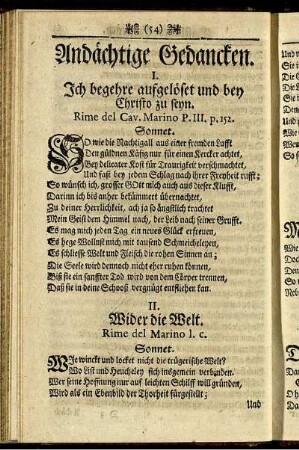 (54)
Andächtige Gedancken.
I.
Ich begehre aufgelöset und bey
Christo zu seyn.
Rime del Cav. Marino P. III. p. 152.
Sonnet.
SO wie die Nachtigall aus einer fremden Lufft
Den güldnen Käfig nur für einen Kercker achtet,
Bey delicater Kost für Traurigkeit verschmachtet,
Und fast bey jedem Schlag nach ihrer Freyheit rufft:
So wünsch ich, grosser GOtt mich auch aus dieser Klufft,
Darinn ich bis anher bekümmert übernachtet,
Zu deiner Herrlichkeit, ach ja so ängstlich trachtet
Mein Geist dem Himmel nach, der Leib nach seiner Grufft.
Es mag mich jeden Tag ein neues Glück erfreuen,
Es hege Wollust mich mit tausend Schmeicheleyen,
Es schliesse Welt und Fleisch die rohen Sinnen an;
Die Seele wird dennoch nicht eher ruhen können,
Biß sie ein sanffter Tod wird von dem Cörper trennen,
Daß sie in deine Schooß vergnügt entfliehen kan.
II.
Wider die Welt.
Rime del Marino l. c.
Sonnet.
WIe winckt und locket nicht die trügerische Welt?
Wo List und Heucheley sich insgemein verbinden.
Wer seine Hoffnung nur auf leichten Schilff will gründen,
Wird als ein Ebenbild der Thorheit fürgestellt;
Und